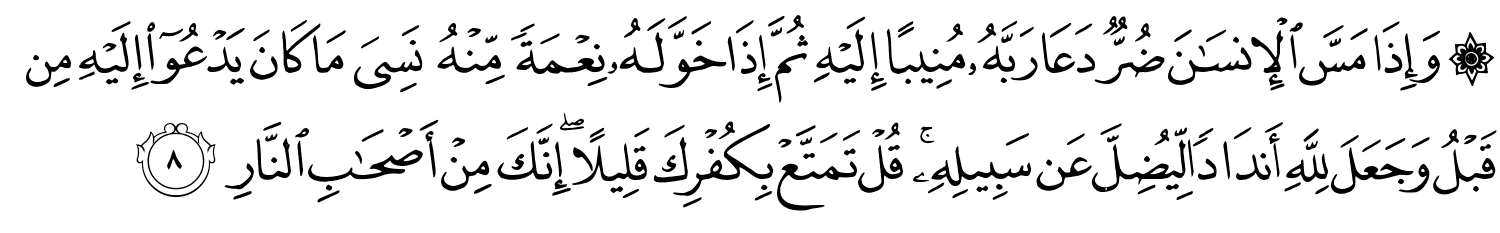 ۞ وَإِذَا مَسَّ ٱلۡإِنسَٰنَ ضُرّٞ دَعَا رَبَّهُۥ مُنِيبًا إِلَيۡهِ ثُمَّ إِذَا خَوَّلَهُۥ نِعۡمَةٗ مِّنۡهُ نَسِيَ مَا كَانَ يَدۡعُوٓاْ إِلَيۡهِ مِن
قَبۡلُ وَجَعَلَ لِلَّهِ أَندَادٗا لِّيُضِلَّ عَن سَبِيلِهِۦۚ قُلۡ تَمَتَّعۡ بِكُفۡرِكَ قَلِيلًا ۖ إِنَّكَ مِنۡ أَصۡحَٰبِ ٱلنَّارِ ٨